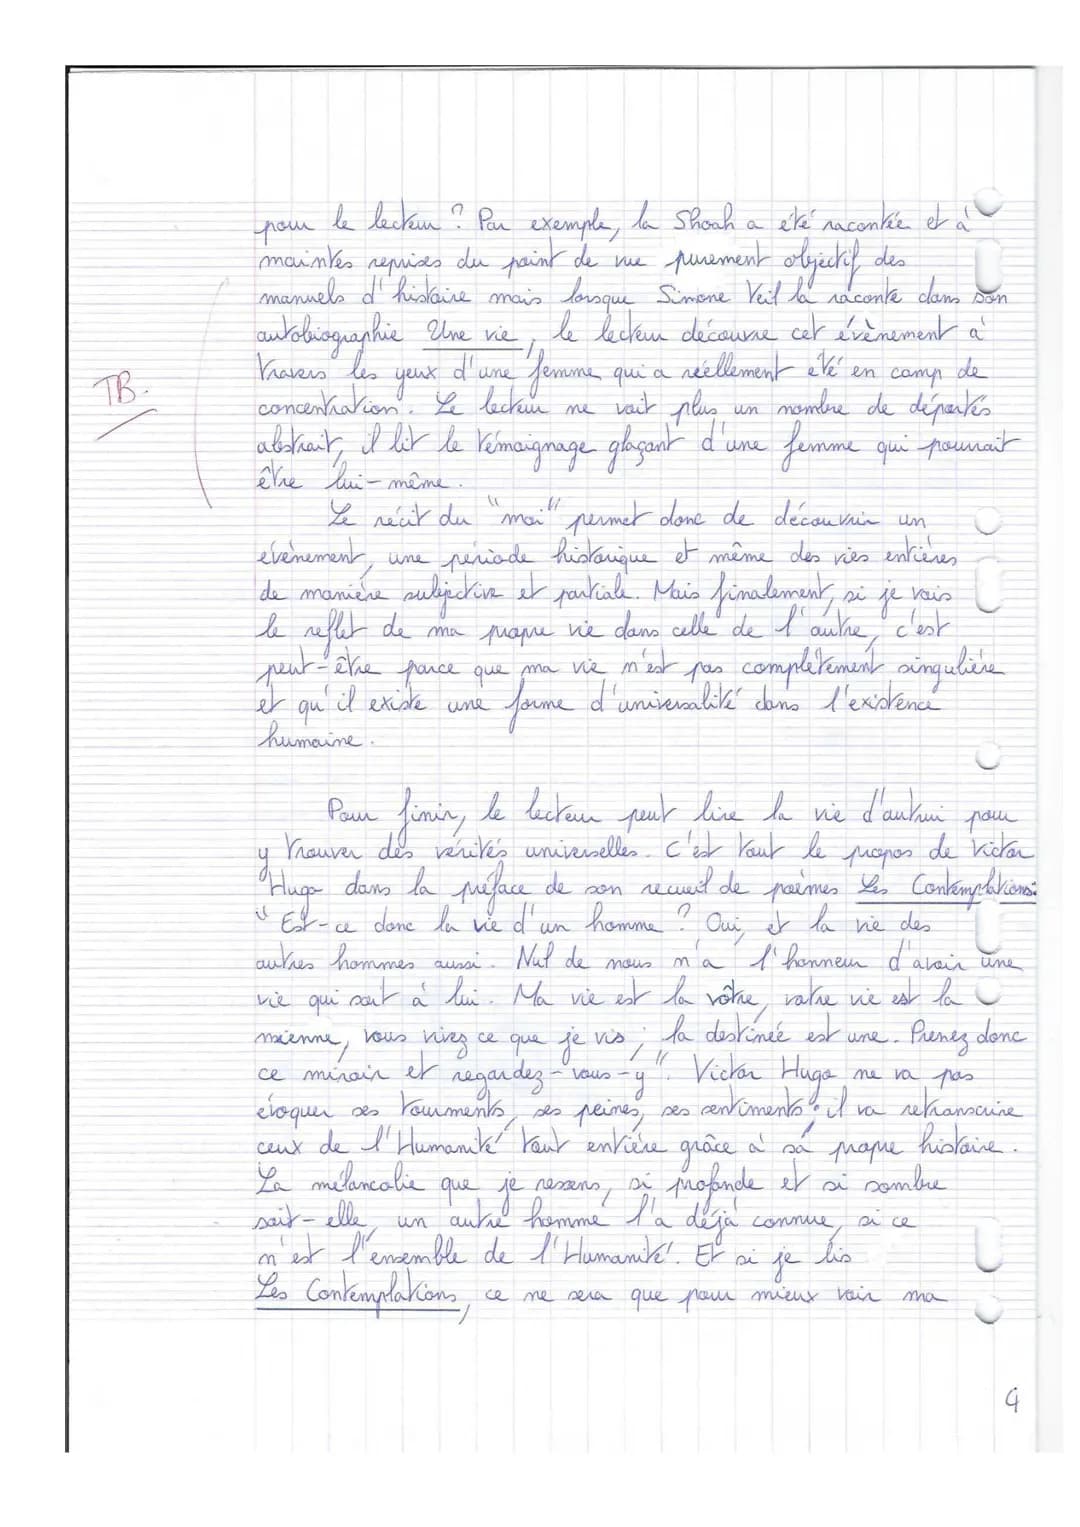 pour le lecteur ? Par exemple, la Shoah a été racontée et à
maintes reprises du point de vue purement objectif des
manuels d'histoire mais lorsque Simone Veil la raconte dans son
autobiographie Une vie, le lecteur découvre cet évènement à
travers les yeux d'une femme qui a réellement été en camp de
TB.
concentration. Le lecteur ne voit plus un nombre de déportés
abstrait, il lit le témoignage glaçant d'une femme qui pourrait
être lui-même.
Le récit du "moi" permet donc de découvrir un
évènement, une période historique et même des vies entières
de manière subjective et partiale. Mais finalement, si je vois
le reflet de ma propre vie dans celle de l'autre, c'est
peut-être parce que ma vie n'est pas complètement singulière
et qu'il existe une forme d'universalité dans l'existence
humaine.
Pour finir, le lecteur peut lire la vie d'autrui pour
y trouver des vérités universelles. C'est tout le propos de Victor
Hugo dans la préface de son recueil de poèmes Les Contemplations:
" Est-ce donc la vie d'un homme ? Oui, et la vie des
autres hommes aussi. Nul de nous n'a l'honneur d'avoir une
vie qui soit à lui. Ma vie est la vôtre, votre vie est la
mienne, vous vivez ce que je vis ; la destinée est une. Prenez donc
ce miroir et regardez-vous-y". Victor Hugo ne va pas
évoquer ses tourments, ses peines, ses sentiments : il va retranscrire
ceux de l'Humanité tout entière grâce à sa propre histoire.
La mélancolie que je ressens, si profonde et si sombre
soit-elle, un autre homme l'a déjà connue, si ce
n'est l'ensemble de l'Humanité. Et si je lis
Les Contemplations, ce ne sera que pour mieux voir ma
4